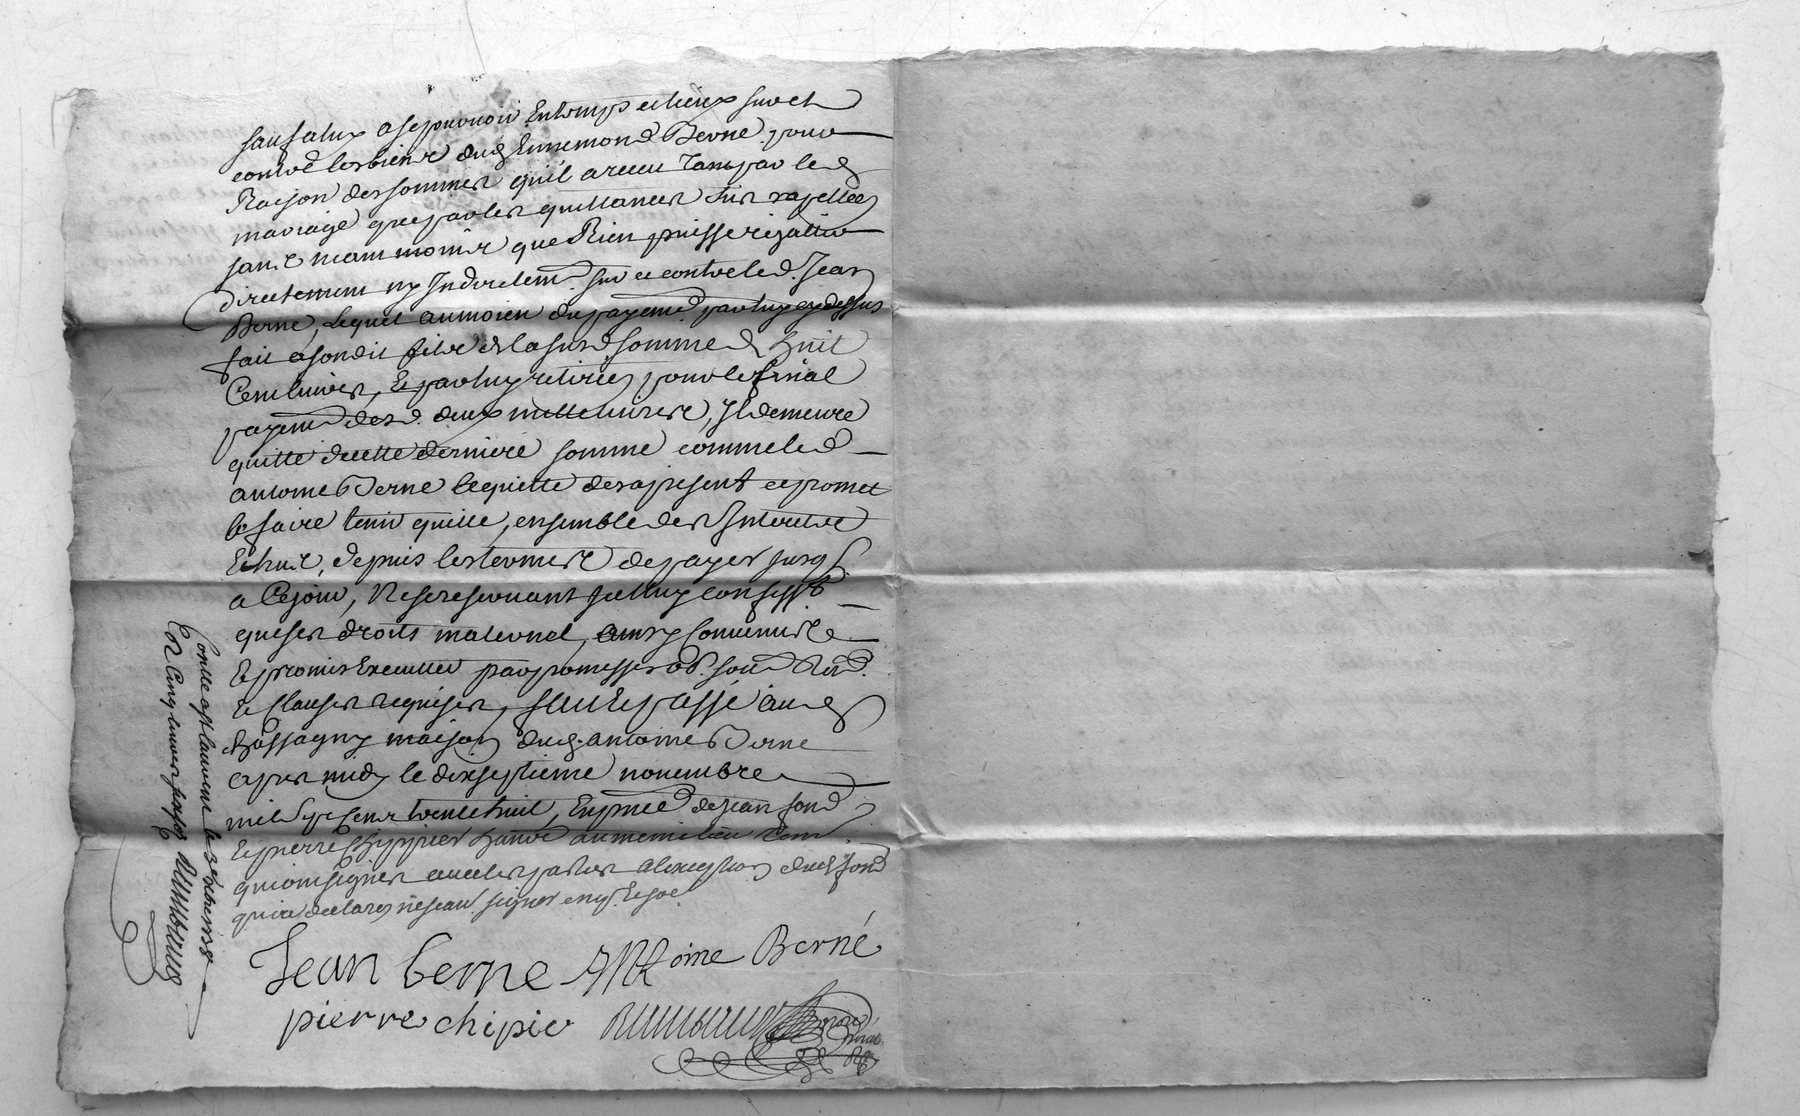 sauf a luy a se pourvoir En temps et lieux sur et
contre les biens dud. Ennemond Berne pour
Raison des sommes quil a receu Tant par led.
mariage que par les quittances sus rapellées
sans neammoins que Rien puisse rejallir
directement ny Indirectemt. sur et contre led. Jean
Berne, lequel au moien du payemt. par luy cy dessus
fait a sondit frere de la susd. somme de huit
Cent livres, Et par luy retirée pour le final
payement desd. deux mille livres, Il demeure
quitte de cette derniere somme comme led.
antoine Berne le quitte des a present et promet
le faire tenir quitte, ensemble des Interets
Echus, depuis les termes de payer jusq.
a Ce jour, Ne se reservant icelluy
que ses droits maternel, ainsy Convenu
Et promis Executer par promesses ob. soum. Ren.
Et Clauses requises, fait Et passé aud.
Chassagny maison dud. antoine Berne
apres midy le dixseptieme novembre
mil sept cent trente huit, En pnce de Jean fond
Et pierre Chippier dud. lieu
qui ont signés avec les parties a l'exception dud. fond
qui a declaré ne scavoir signer enq. Et som.
Jean berne Antoine Berné
pierre chipie
Contlé a st laurent le
Recu Cinq livres